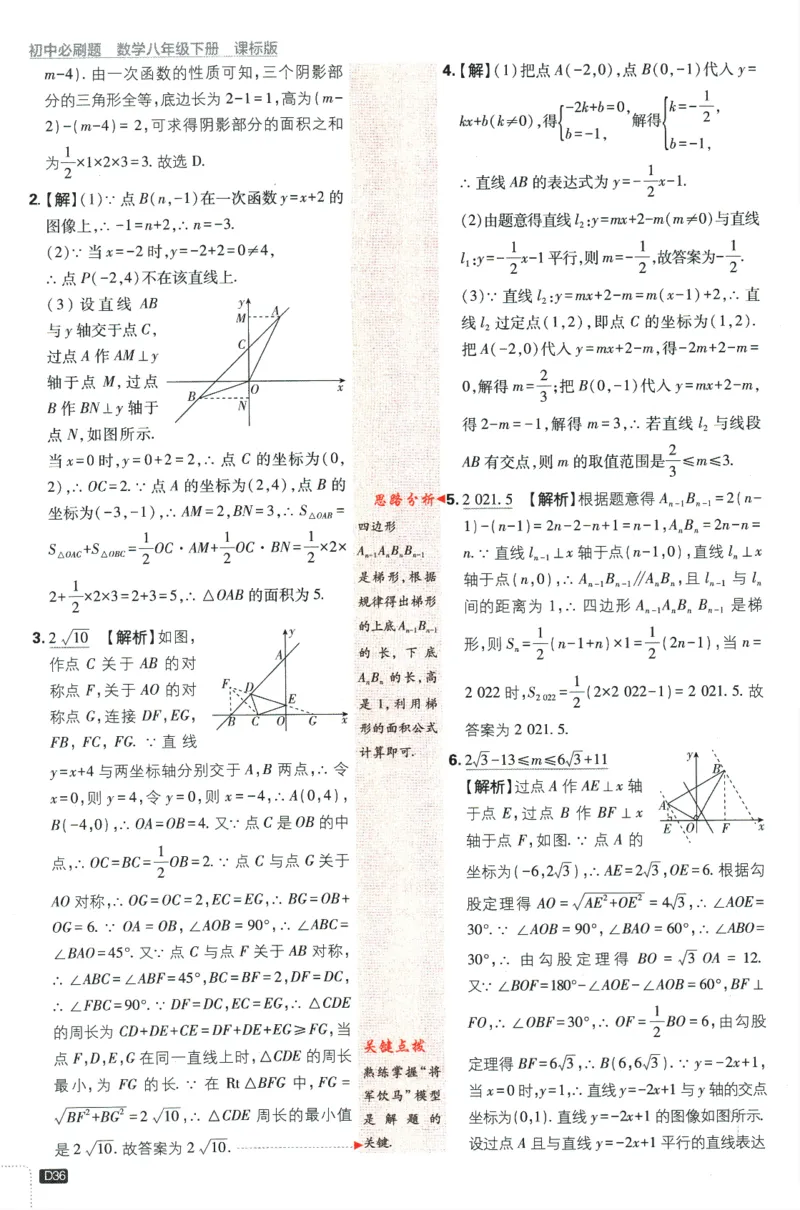 初中必刷题 数学八年级下册 课标版
m-4). 由一次函数的性质可知,三个阴影部
分的三角形全等,底边长为 2-1=1,高为(m-
2)-(m-4)= 2,可求得阴影部分的面积之和
为 1/2 ×1×2×3=3. 故选 D.
2. 【解】(1)∵ 点 B(n,-1)在一次函数 y=x+2 的
图像上,∴ -1=n+2,∴ n=-3.
(2)∵ 当 x=-2 时,y=-2+2=0≠4,
∴ 点 P(-2,4)不在该直线上.
(3) 设直线 AB
与 y 轴交于点 C,
过点 A 作 AM⊥y
轴于点 M, 过点
B 作 BN⊥y 轴于
点 N,如图所示.
y
M
A
C
O
x
B
N
当 x=0 时,y=0+2=2,∴ 点 C 的坐标为(0,
2),∴ OC=2. ∵ 点 A 的坐标为(2,4),点 B 的
坐标为(-3,-1),∴ AM=2,BN=3,∴ S△OAB =
S△OAC+S△OBC = 1/2 OC·AM+ 1/2 OC·BN= 1/2 ×2×
2+ 1/2 ×2×3=2+3=5,∴ △OAB 的面积为 5.
3. 2√10 【解析】如图,
作点 C 关于 AB 的对
称点 F,关于 AO 的对
称点 G,连接 DF,EG,
FB, FC, FG. ∵ 直线
y
A
F
D
E
B
C
O
G
x
y=x+4 与两坐标轴分别交于 A,B 两点,∴ 令
x=0,则 y=4,令 y=0,则 x=-4,∴ A(0,4),
B(-4,0),∴ OA=OB=4. 又∵ 点 C 是 OB 的中
点,∴ OC=BC= 1/2 OB=2. ∵ 点 C 与点 G 关于
AO 对称,∴ OG=OC=2,EC=EG,∴ BG=OB+
OG=6. ∵ OA=OB, ∠AOB=90°,∴ ∠ABC=
∠BAO=45°. 又∵ 点 C 与点 F 关于 AB 对称,
∴ ∠ABC=∠ABF=45°,BC=BF=2,DF=DC,
∴ ∠FBC=90°. ∵ DF=DC,EC=EG,∴ △CDE
的周长为 CD+DE+CE=DF+DE+EG≥FG,当
点 F,D,E,G 在同一直线上时,△CDE 的周长
最小,为 FG 的长. ∵ 在 Rt△BFG 中, FG=
√(BF²+BG²) =2√10,∴ △CDE 周长的最小值
是 2√10. 故答案为 2√10.
D36
思路分析
四边形
Aₙ₋₁AₙBₙBₙ₋₁
是梯形,根据
规律得出梯形
的上底Aₙ₋₁Bₙ₋₁
的长,下底
AₙBₙ 的长,高
是 1,利用梯
形的面积公式
计算即可.
关键点拨
熟练掌握“将
军饮马”模型
是解题的
关键.
4. 【解】(1)把点 A(-2,0),点 B(0,-1)代入 y=
kx+b(k≠0),得{-2k+b=0, b=-1, 解得{k=-1/2, b=-1,
∴ 直线 AB 的表达式为 y=- 1/2 x-1.
(2)由题意得直线 l₂:y=mx+2-m(m≠0)与直线
l₁:y=- 1/2 x-1 平行,则 m=- 1/2 ,故答案为- 1/2 .
(3)∵ 直线 l₂:y=mx+2-m=m(x-1)+2,∴ 直
线 l₂ 过定点(1,2),即点 C 的坐标为(1,2).
把 A(-2,0)代入 y=mx+2-m,得-2m+2-m=
0,解得 m= 2/3 ;把 B(0,-1)代入 y=mx+2-m,
得 2-m=-1,解得 m=3,∴ 若直线 l₂ 与线段
AB 有交点,则 m 的取值范围是 2/3 ≤m≤3.
5. 2 021.5 【解析】根据题意得 Aₙ₋₁Bₙ₋₁=2(n-
1)-(n-1)= 2n-2-n+1=n-1,AₙBₙ=2n-n=
n. ∵ 直线 lₙ₋₁⊥x 轴于点(n-1,0),直线 lₙ⊥x
轴于点(n,0),∴ Aₙ₋₁Bₙ₋₁∥AₙBₙ,且 lₙ₋₁ 与 lₙ
间的距离为 1,∴ 四边形 Aₙ₋₁AₙBₙ Bₙ₋₁ 是梯
形,则 Sₙ= 1/2 (n-1+n)×1= 1/2 (2n-1),当 n=
2 022 时,S₂ ₀₂₂= 1/2 (2×2 022-1)= 2 021.5. 故
答案为 2 021.5.
6. 2√3-13≤m≤6√3+11
【解析】过点 A 作 AE⊥x 轴
于点 E,过点 B 作 BF⊥x
轴于点 F,如图. ∵ 点 A 的
y
B
A
E
O
F
x
坐标为(-6,2√3),∴ AE=2√3,OE=6. 根据勾
股定理得 AO=√(AE²+OE²) =4√3,∴ ∠AOE=
30°. ∵ ∠AOB=90°,∠BAO=60°,∴ ∠ABO=
30°,∴ 由勾股定理得 BO=√3 OA=12.
又∵ ∠BOF=180°-∠AOE-∠AOB=60°,BF⊥
FO,∴ ∠OBF=30°,∴ OF= 1/2 BO=6,由勾股
定理得 BF=6√3,∴ B(6,6√3). ∵ y=-2x+1,
当 x=0 时,y=1,∴ 直线 y=-2x+1 与 y 轴的交点
坐标为(0,1). 直线 y=-2x+1 的图像如图所示.
设过点 A 且与直线 y=-2x+1 平行的直线表达